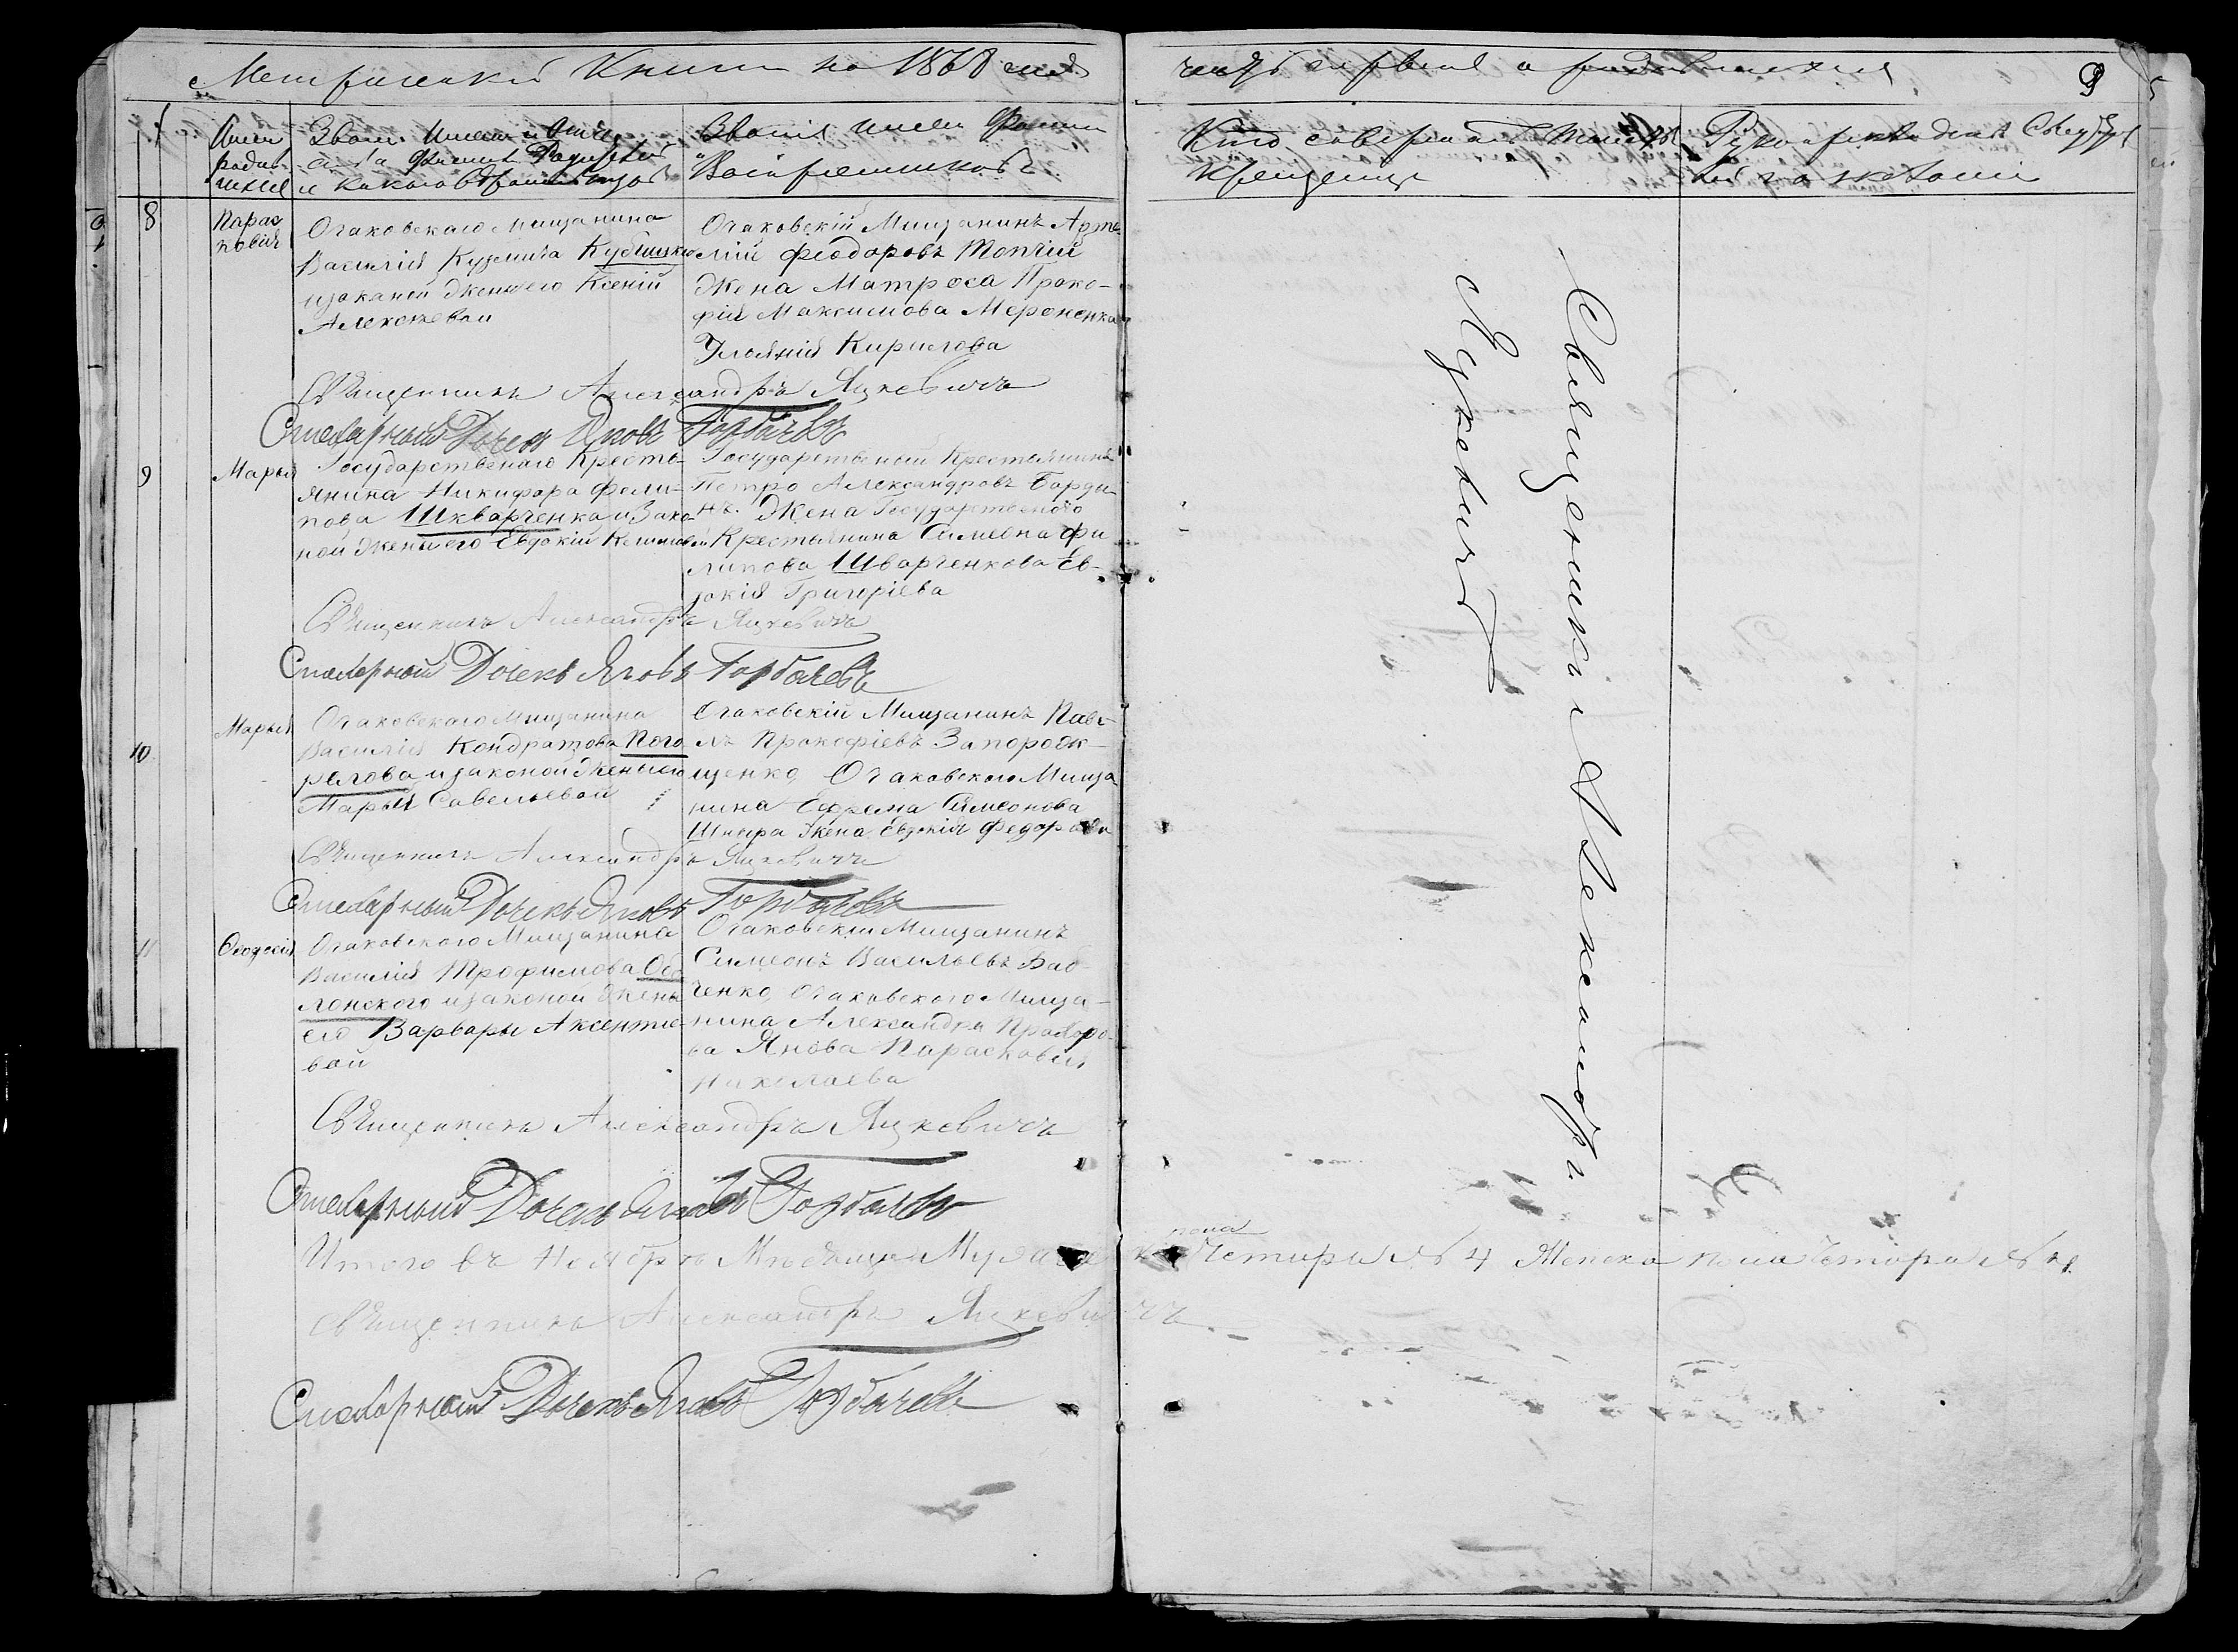 Метрической Книги на 1868 годъ
часть первая о родившихся
9
Имя
родив-
шихся
Званіе Имя и Отчество
и фамилія Родителей
и какого Вероисповеданія
Званія имя Фамилія
Воспріемниковъ
Кто совершалъ таинство
Крещенія
Рукоприкладство Свидѣтелей
по желанію
8
Парас
ковія
Очаковскаго мищанина
Василія Кузмича Кубицкаго
изаконой жены его Ксеній
Алексѣевой
Очаковскій Мищанинъ Арте-
мій Феодоровъ Топчій
Жена Матроса Проко-
фій Максимова Мероненка
Ульянія Кирилова
Священникъ Александръ Яцкевичъ
Столарный Дьячекъ Яковъ Горбачевъ
9
Марья
Государственаго Кресть-
янина Никифора Фели-
пова Шкварченка и Зако-
ной жены его Евдокій
Государственый Крестьянинъ
Петро Александровъ Барды-
нъ. Жена Государственого
Крестьянина Симеона Фи
липова Шварченкова Ев-
докія Григоріева
Священникъ Александръ Яцкевичъ
Дьячекъ Яковъ Горбачевъ
10
Марья
Очаковскаго Мищанина
Василія Кондратова Пого
релова изаконой жены его
Марьи Савельевой
Очаковскій Мищанинъ Паве-
лъ Прокофіевъ Запорож-
щенко, Очаковского Мища
нина Ефрема Симеонова
Шныра Жена Евдокія Федорова
Священникъ Александръ Яцкевичъ
Дьячекъ Яковъ Горбачевъ
11
Феодосія
Очаковского Мищанина
Василія Трофимова Обо
лонского изаконой жены
его Варвары Аксентие-
вой
Очаковскій Мищанинъ
Симеонъ Васильевъ Баб-
ченко, Очаковского Мища-
нина Александра Прохоро-
ва Янова Парасковія
Николаева
Священникъ Александръ Яцкевичъ
Дьячекъ Яковъ Горбачевъ
Итого въ Ноябрѣ Мѣсяцѣ Мужеска пола Четири № 4 Женска пола Четири № 4
Священникъ Александръ Яцкевичъ
Дьячекъ Яковъ Горбачевъ
Священникъ Александръ
Яцкевичъ